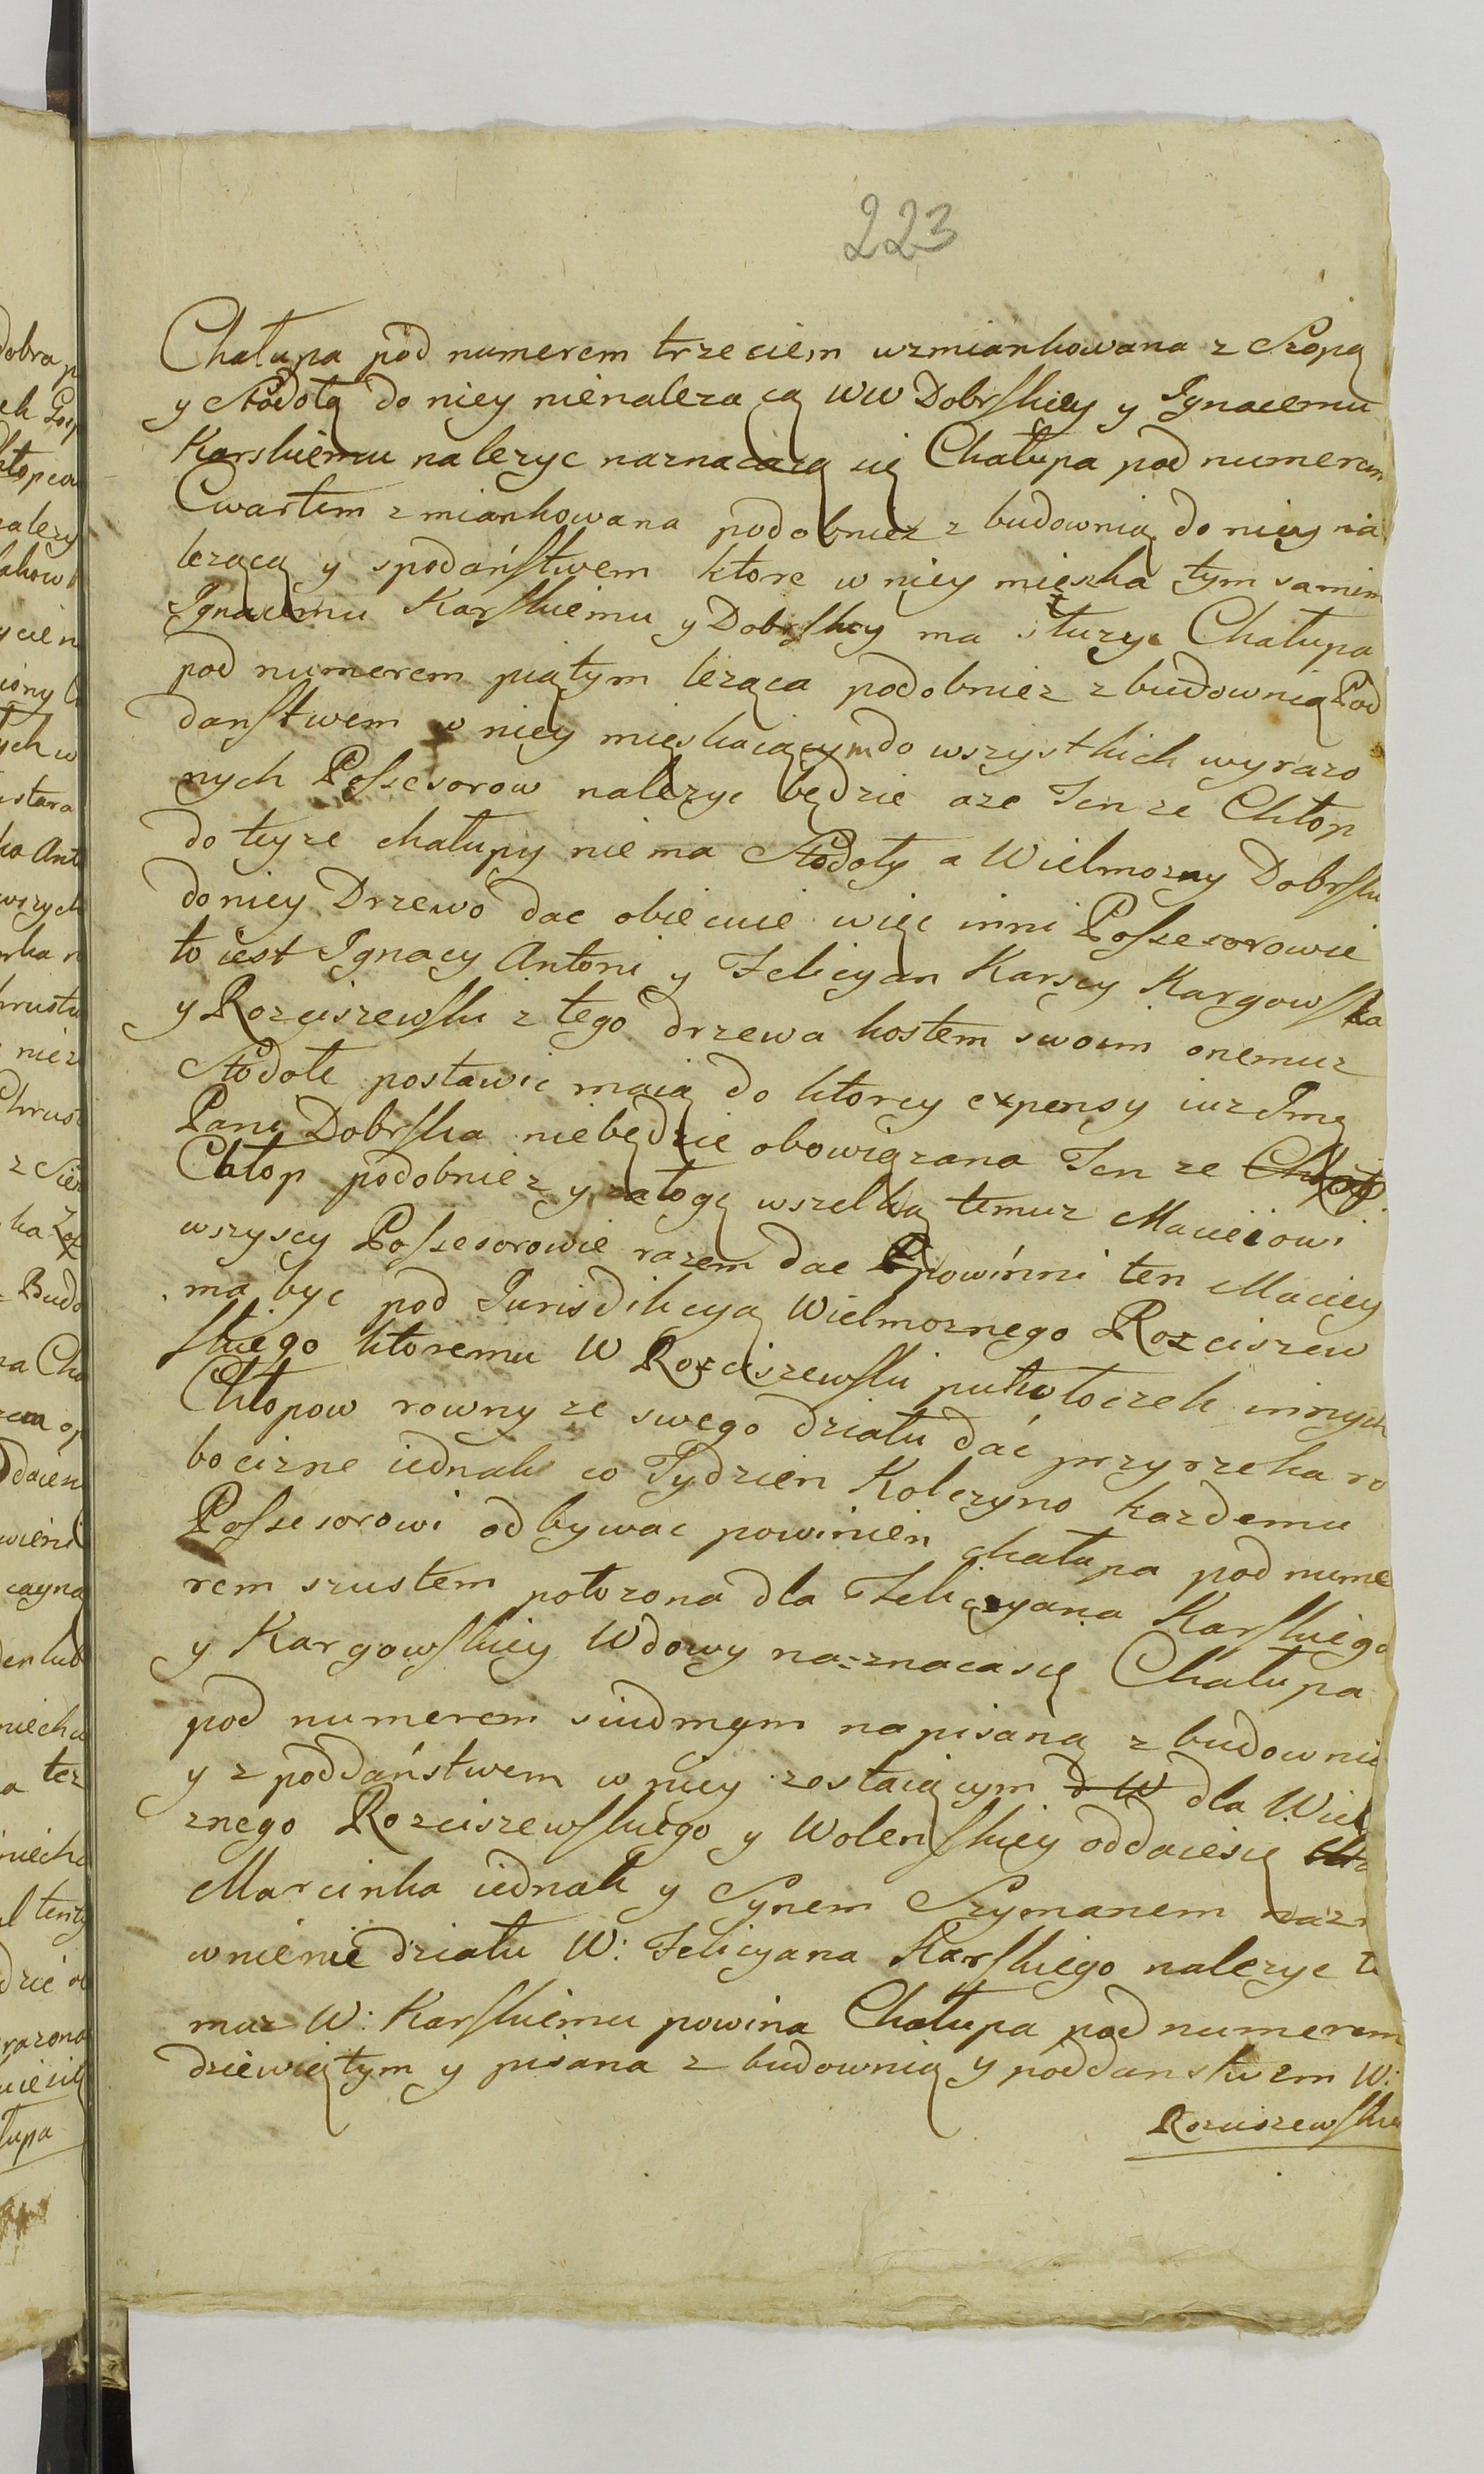 223
Chałupa pod numerem trzeciem wzmiankowana z Szopą
y Stodołą do niey nienalezącą WW Dobrskiey y Ignacemu
Karskiemu nalezyc naznacaią się Chałupa pod numerem
Cwartem zmiankowana podobniez z budownią do niey na
lezącą y spodaństwem ktore w niey mięszka tym samim
Ignacemu Karskiemu y Dobrskiey ma słuzyc Chałupa
pod numerem piątym leząca podobniez z budownią Pod
danstwem w niey mięskaiącym do wszystkich wyrazo
nych Possesorow nalezyc będzie aze Ten ze Chłop
do teyze chałupy niema Stodoły a Wielmozny Dobrski
do niey Drzewo dac obiecuie więc inni Possesorowie
to iest Ignacy Antoni y Felicyan Karscy Kargowska
y Rozciszewski z tego drzewa kostem swoim onemuz
Stodołe postawic maią do ktorey expensy iuz Jmę
Pani Dobrska niebędzie obowiązana Ten ze
Chłop podobniez y załogę wszelką temuz Macieiowi
wszyscy Possesorowie razem dac powinni ten Maciey
ma byc pod Jurisdikcyą Wielmoznego Rozciszew
skiego ktoremu W Rozciszewski pułwłoczek innych
Chłopow rowny ze swego działu dać przyrzeka ro
bocizne iednak co Tydzien Kolczyno kazdemu
Possesorowi odbywac powinien chałupa pod nume
rem szustem połozona dla Felicyana Karskiego
y Kargowskiey Wdowy na=znaca się Chałupa
pod numerem siudmym napisaną z budownią
y z poddaństwem w niey zostaiącym d W dla Wiel
znego Rozciszewskiego y Wolenskiey oddaie się
Marcinka iednak y Synem Szymanem
wnienie działu W: Felicyana Karskiego nalezyc te
muz W: Karskiemu powina Chałupa pod numerem
dziewiętym y pisana z budownią y poddanstwem W:
Rozciszewskie